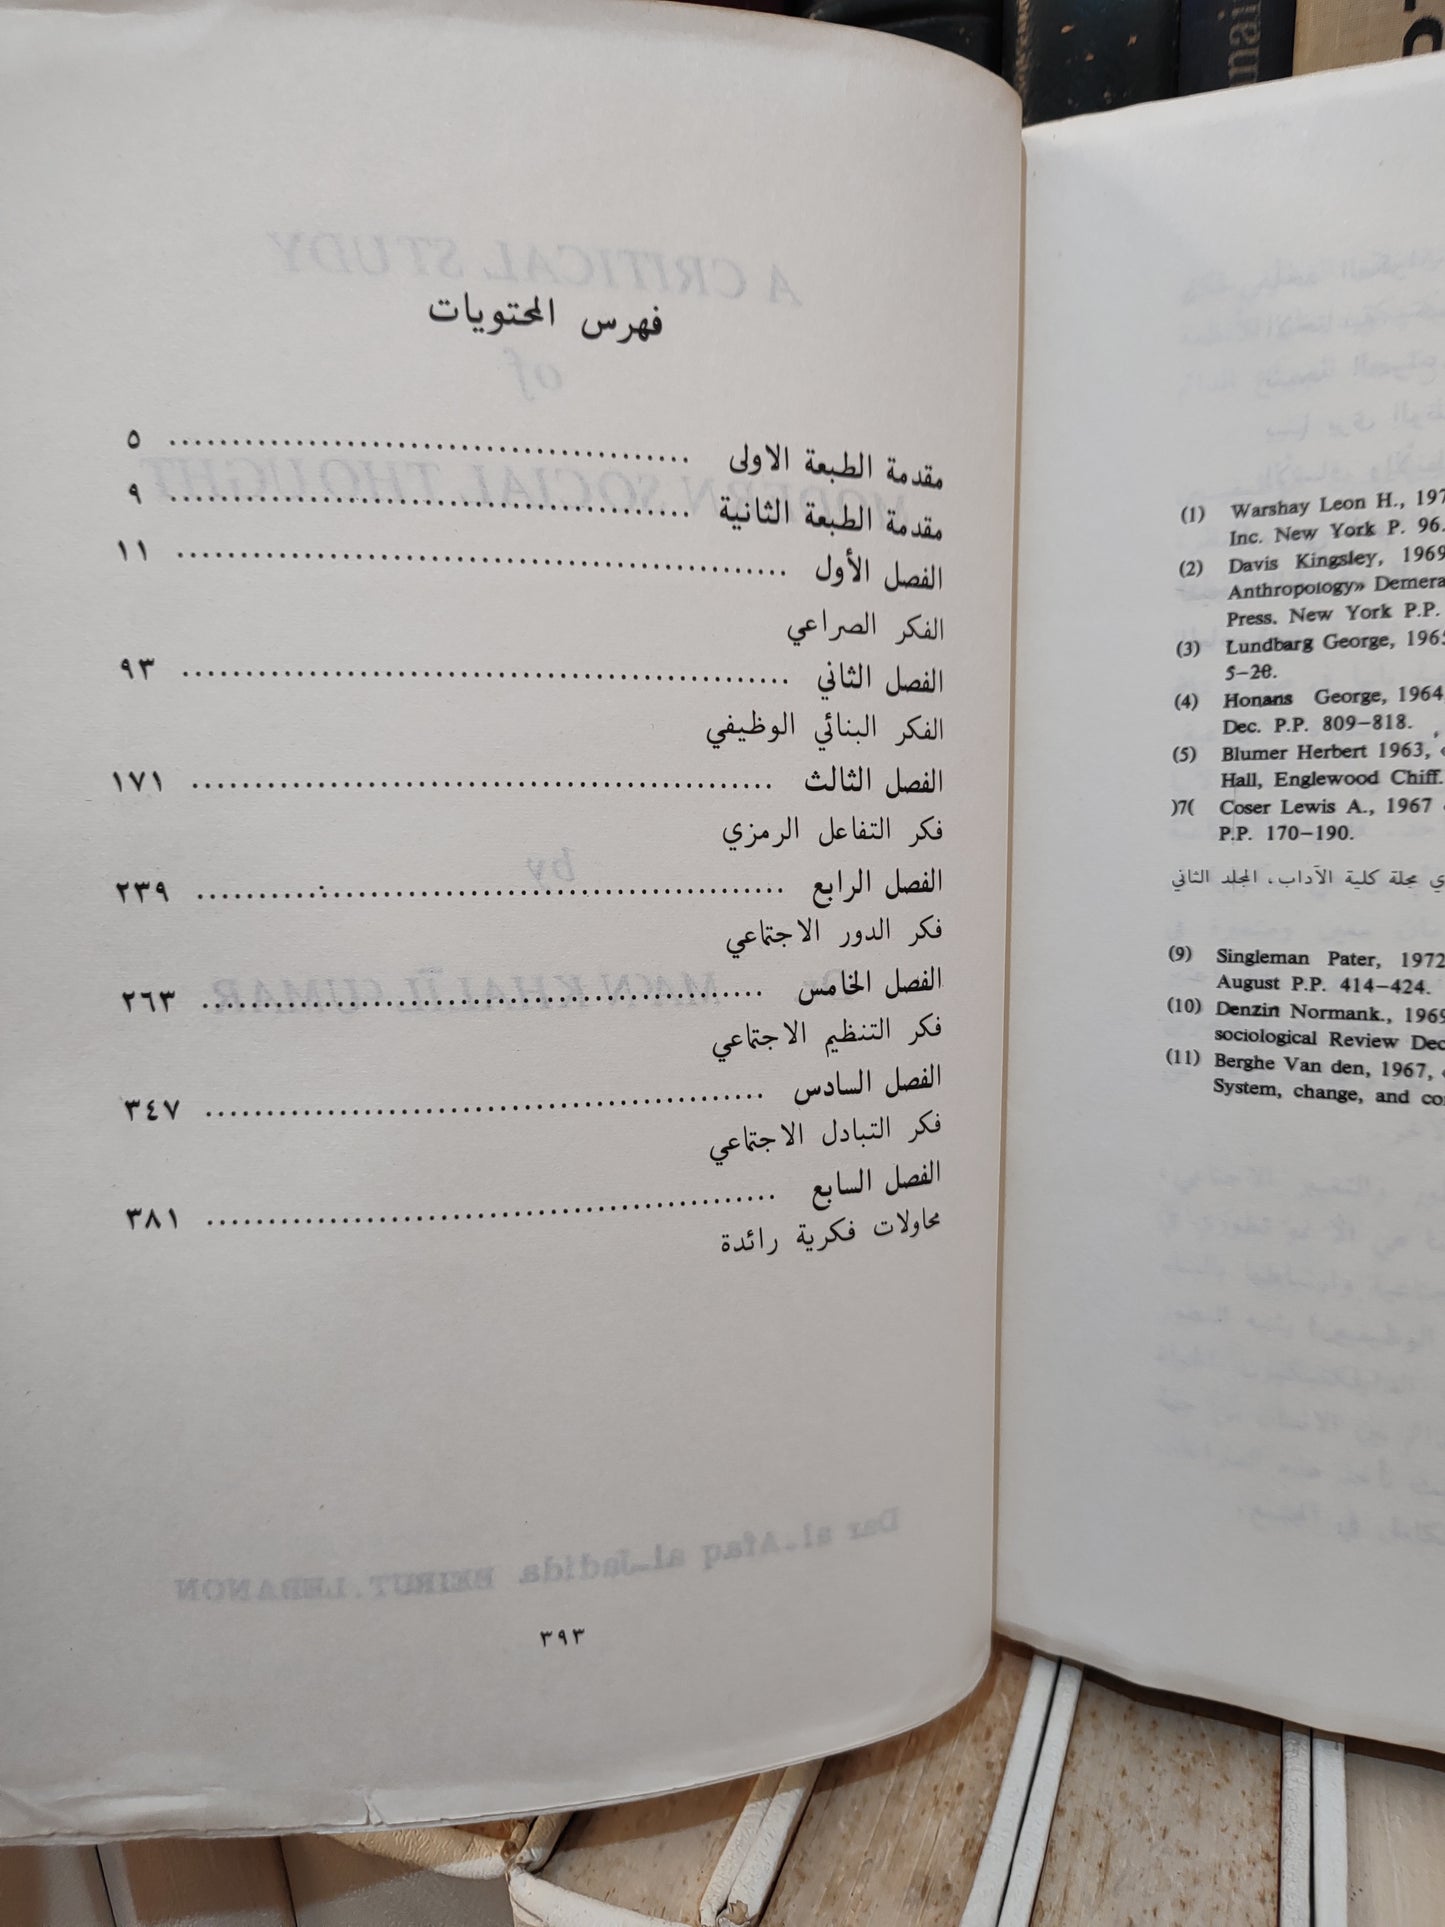 فهرس المحتويات
مقدمة الطبعة الاولى ........................................ ٥
مقدمة الطبعة الثانية ........................................ ٩
الفصل الأول ........................................ ١١
الفكر الصراعي
الفصل الثاني ........................................ ٩٣
الفكر البنائي الوظيفي
الفصل الثالث ........................................ ١٧١
فكر التفاعل الرمزي
الفصل الرابع ........................................ ٢٣٩
فكر الدور الاجتماعي
الفصل الخامس ........................................ ٢٦٣
فكر التنظيم الاجتماعي
الفصل السادس ........................................ ٣٤٧
فكر التبادل الاجتماعي
الفصل السابع ........................................ ٣٨١
محاولات فكرية رائدة
٣٩٣
(1) Warshay Leon H., 197
Inc. New York P. 96.
(2) Davis Kingsley, 1969
Anthropology» Demera
Press. New York P.P.
(3) Lundbarg George, 1965
5–28.
(4) Honans George, 1964
Dec. P.P. 809–818.
(5) Blumer Herbert 1963, «
Hall, Englewood Chiff.
)7( Coser Lewis A., 1967 «
P.P. 170–190.
ي مجلة كلية الآداب، المجلد الثاني
(9) Singleman Pater, 1972
August P.P. 414–424.
(10) Denzin Normank., 1969
sociological Review Dec
(11) Berghe Van den, 1967, «
System, change, and co